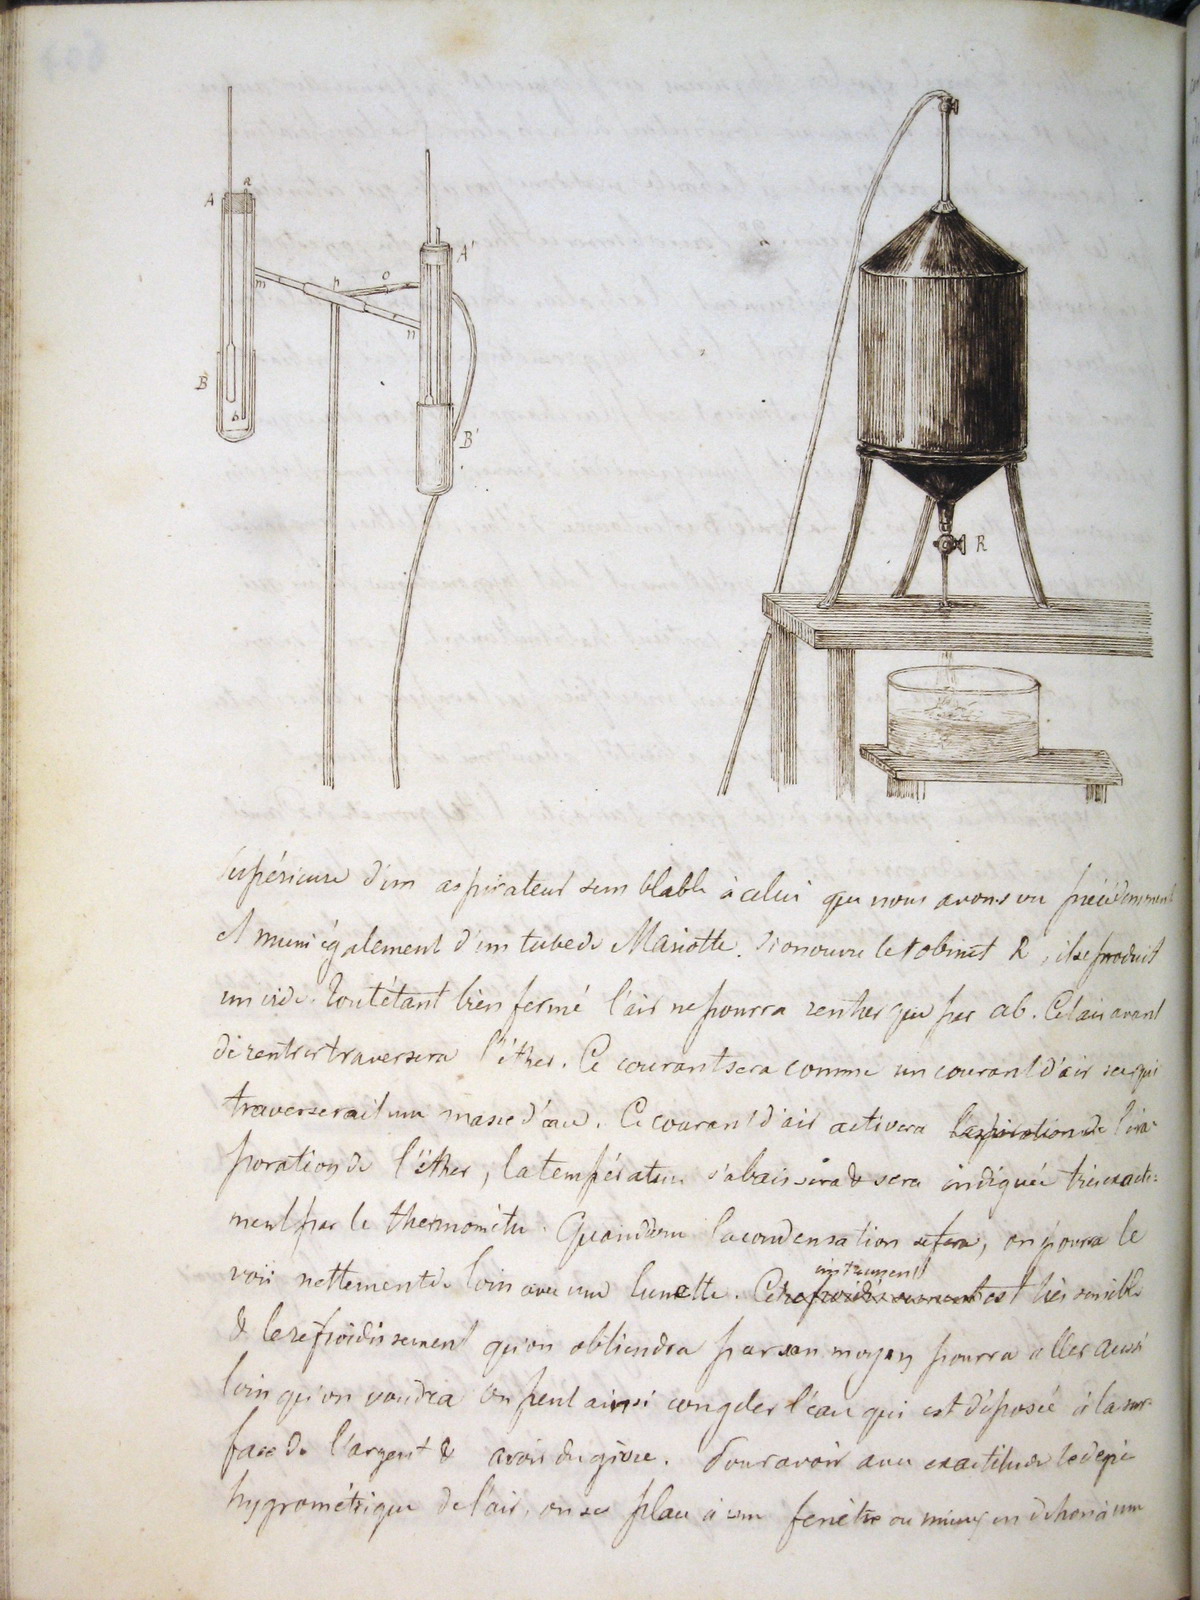 a
A
A'
m
p
o
n
B
b
B'
R
supérieure d'un aspirateur semblable à celui que nous avons vu précédemment
et muni également d'un tube de Mariotte. Si on ouvre le robinet R, il se produit
un vide. Tout étant bien fermé l'air ne pourra rentrer que par ab. Cet air avant
de rentrer traversera l'éther. Ce courant sera comme un courant d'air sec qui
traverserait une masse d'eau. Ce courant d'air activera l'aspiration de l'éva-
poration de l'éther, la température s'abaissera & sera indiquée très exacte-
ment par le thermomètre. Quand la condensation se fera, on pourra le
instrument
voir nettement de loin avec une lunette. Ce refroidissement est très sensible
& le refroidissement qu'on obtiendra par son moyen pourra aller aussi
loin qu'on voudra on peut ainsi congeler l'eau qui est déposée à la sur-
face de l'argent & avoir du givre. Pour avoir avec exactitude le degré
hygrométrique de l'air, on se place à une fenêtre ou mieux en dehors à une